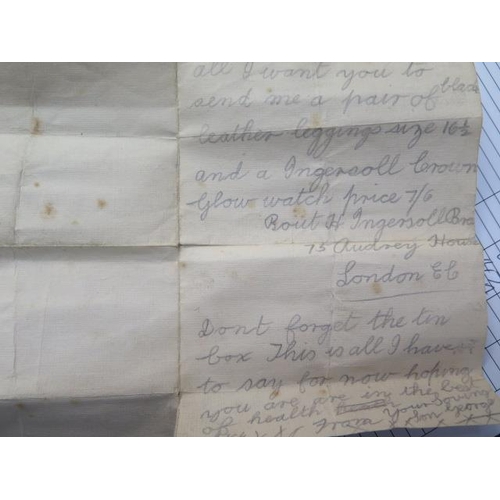 all I want you to
send me a pair of black
leather leggings size 16½
and a Ingersoll Crown
Glow watch price 7/6
Rout H Ingersoll Bro
15 Audrey House
London EC
Dont forget the tin
box This is all I have
to say for now hoping
you are in the best
of health
from your loving
son